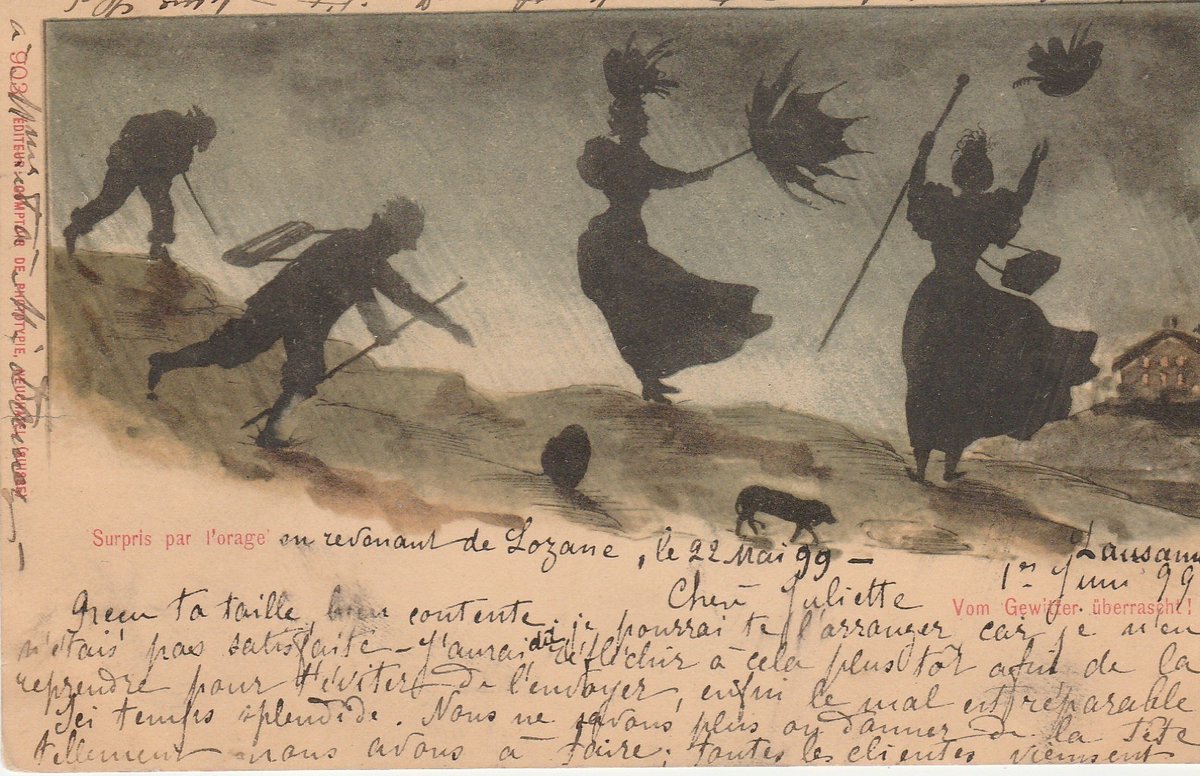 903 ÉDITEUR: COMPTOIR DE PHOTOTYPIE, NEUCHATEL (SUISSE)
Surpris par l'orage en revenant de Lozane, le 22 Mai 99 —
Lausanne
1er Juin 99
Chère Juliette
Vom Gewitter überrascht!
Reçu ta taille, bien contente, je pourrai te l'arranger car je n'en
n'étais pas satisfaite — J'aurai dû réfléchir à cela plus tôt afin de la
reprendre pour t'éviter de l'envoyer, enfin le mal est réparable
Ici temps splendide. Nous ne savons plus où donner de la tête
tellement nous avons à faire; toutes les clientes viennent